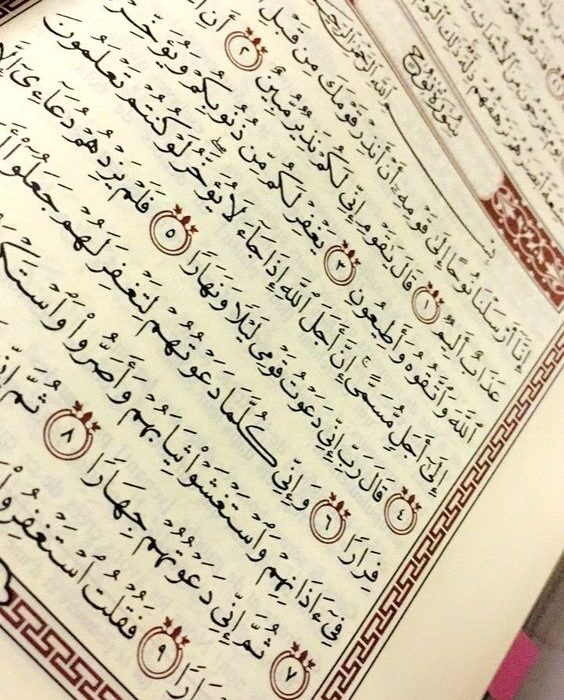 سُورَةُ نُوحٍ
ٱللَّهِ ٱلرَّحْمَٰنِ ٱلرَّحِيمِ
إِنَّآ أَرْسَلْنَا نُوحًا إِلَىٰ قَوْمِهِۦٓ أَنْ أَنذِرْ قَوْمَكَ مِن قَبْلِ
عَذَابٌ أَلِيمٌ ١ قَالَ يَٰقَوْمِ إِنِّى لَكُمْ نَذِيرٌ مُّبِينٌ ٢ أَنِ
ٱللَّهَ وَٱتَّقُوهُ وَأَطِيعُونِ ٣ يَغْفِرْ لَكُم مِّن ذُنُوبِكُمْ وَيُؤَخِّرْ
إِلَىٰٓ أَجَلٍ مُّسَمًّى ۚ إِنَّ أَجَلَ ٱللَّهِ إِذَا جَآءَ لَا يُؤَخَّرُ ۖ لَوْ كُنتُمْ تَعْلَمُونَ
٤ قَالَ رَبِّ إِنِّى دَعَوْتُ قَوْمِى لَيْلًا وَنَهَارًا ٥ فَلَمْ يَزِدْهُمْ دُعَآءِىٓ إِلَّا
فِرَارًا ٦ وَإِنِّى كُلَّمَا دَعَوْتُهُمْ لِتَغْفِرَ لَهُمْ جَعَلُوٓا۟
فِىٓ ءَاذَانِهِمْ وَٱسْتَغْشَوْا۟ ثِيَابَهُمْ وَأَصَرُّوا۟ وَٱسْتَكْ
٧ ثُمَّ إِنِّى دَعَوْتُهُمْ جِهَارًا ٨ ثُمَّ
٩ فَقُلْتُ ٱسْتَغْفِرُوا۟